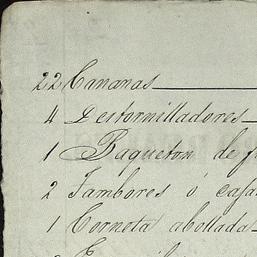 22 Cananas
4 Destornilladores
1 Baqueton de f
2 Tambores ó cajas
1 Corneta abollada